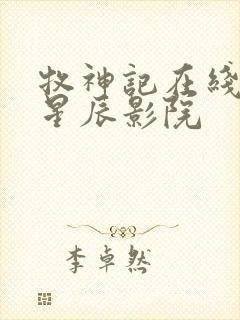 牧神記在綫
星辰影院
李卓然